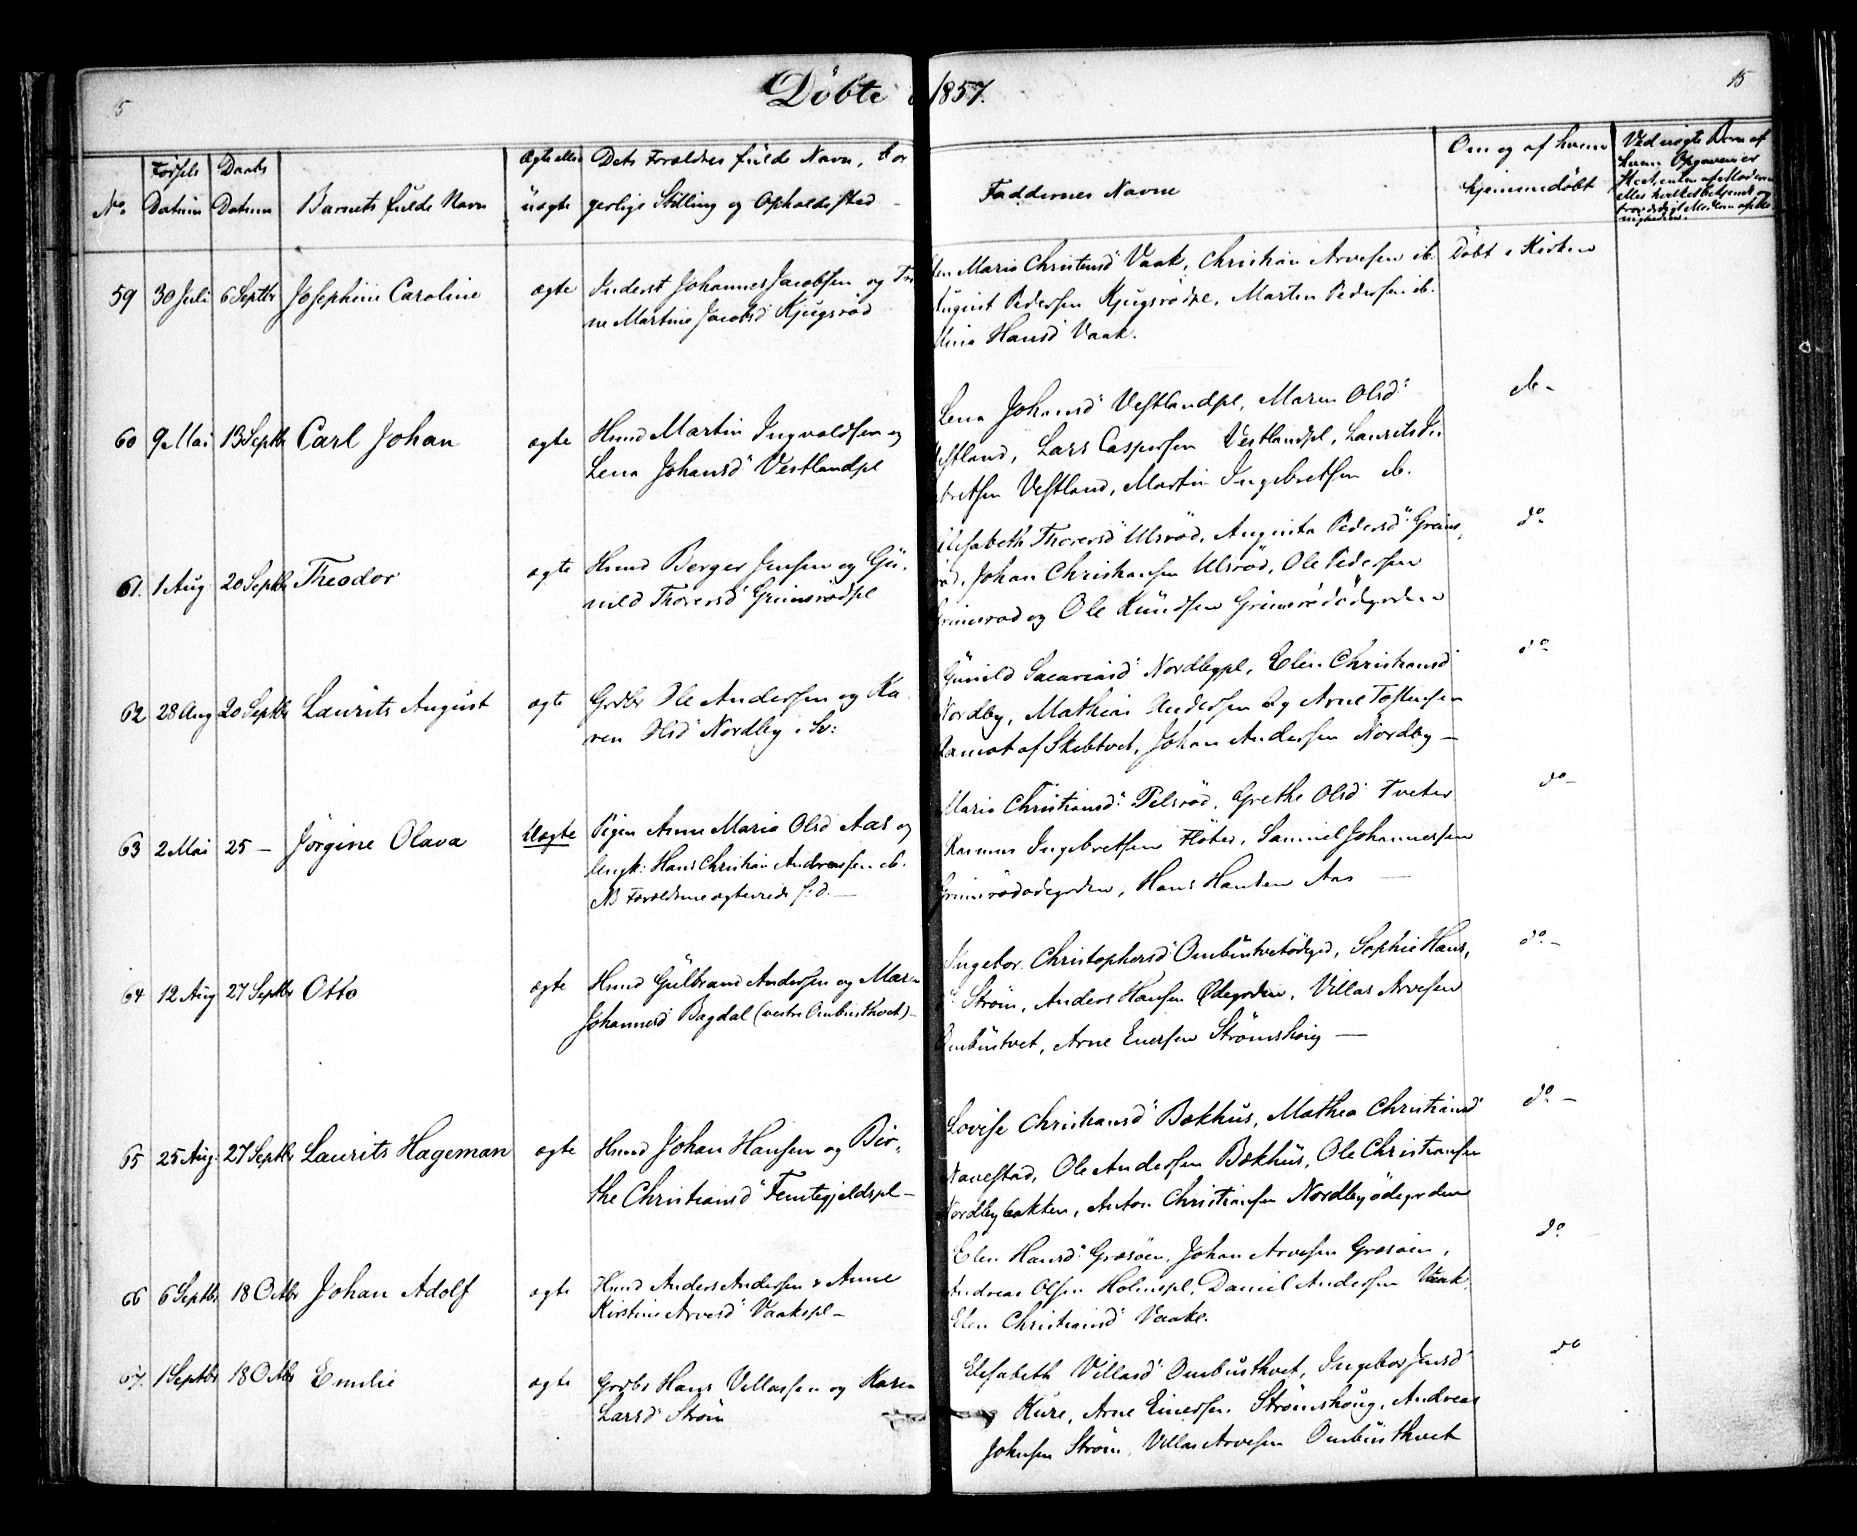 5
Döbte 1857.
15
No.
Fødsels Datum
Daabs Datum
Barnets fulde Navn
Ægte eller uægte
Dets Forældres fulde Navn, bor
gerlige Stilling og Opholdssted
Faddernes Navne
Om og af hvem
hjemmedöbt
59
30 Juli
6 Septbr
Josephine Caroline
ægte
Inderst Johannes Jacobsen og
ne Martine Jacobsd Kjugsröd
Maria Christensd Vaak, Christian Arvesen ib.
August Pedersen Kjugsrödpl, Martin Pedersen ib.
Hansd Vaak.
Döbt i Kirken
60
9 Mai
13 Septbr
Carl Johan
ægte
Huusmd Martin Ingvaldsen og
Lena Johansd Vestlandpl
Lena Johansd Vestlandpl, Maren Olsd
Vestland, Lars Caspersen Vestlandpl, Laurits In
bretsen Vestland, Martin Ingebretsen ib.
do
61.
1 Aug
20 Septbr
Theodor
ægte
Huusmd Berger Jensen og Gu
nild Thoresd Grimsrödpl
Elisabeth Thoresd Ulsröd, Augusta Pedersd Grims
röd, Johan Christiansen Ulsröd, Ole Pedersen
Grimsröd og Ole Knudsen Grimsrödödegorden
do
62
28 Aug
20 Septbr
Laurits August
ægte
Grdbr Ole Andersen og Ka
ren Olsd Nordby i
Gunild Sacariasd Nordbypl, Elen Christiansd
Nordby, Mathias Andersen og Arne Tostensen
af Skebtvet, Johan Andersen Nordby —
do
63
2 Mai
25 —
Jörgine Olava
Uægte
Pigen Anne Maria Olsd Aas og
Ungk: Hans Christian Andreassen ib.
NB Forældrene ægteviede s: d. —
Maria Christiansd Pilsröd, Grethe Olsd Tveter
Rasmus Ingebretsen Flötes, Samuel Johannessen
Grimsrödödegorden, Hans Hansen Aas —
do —
64
12 Aug
27 Septbr
Otto
ægte
Huusmd Gulbrand Andersen og Mar
Johannesd Bagdal (vestre Ombustvet) —
Ingebor Christophersd Ombustvetödegd, Sophie Hans
d Ström, Anders Hansen Ödegorden, Villas Arvesen
Ombustvet, Arne Enersen Strömshoug —
do —
65
25 Aug.
27 Septbr
Laurits Hageman
ægte
Huusmd Johan Hansen og Bir
the Christiansd Femtegjeldspl —
Lovise Christiansd Bækhus, Mathea Christiansd
Navestad, Ole Andersen Bækhus, Ole Christiansen
Nordbybakken, Anton Christiansen Nordbyödegorden
do —
66
6 Septbr
18 Octbr
Johan Adolf
ægte
Huusmd Anders Andersen & Anne
Kirstine Arvesd Vaakspl —
Elen Hansd Grasöen, Johan Arvesen Grasöen,
Andreas Olsen Holmspl, Daniel Andersen Vaak,
Elen Christiansd Vaake.
do
67.
1 Septbr
18 Octbr
Emilie
ægte
Grdbr Hans Villassen og Karen
Larsd Ström
Elisabeth Villasd Ombustvet, Ingebor Jensd
Kure, Arne Enersen Strömshoug, Andreas
Johnsen Ström, Villas Arvesen Ombusthvet
do